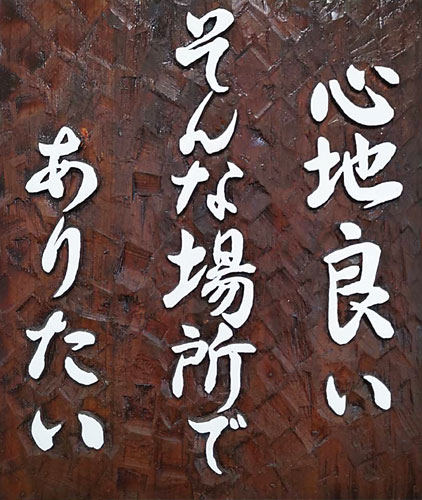 心地良い
そんな場所で
ありたい